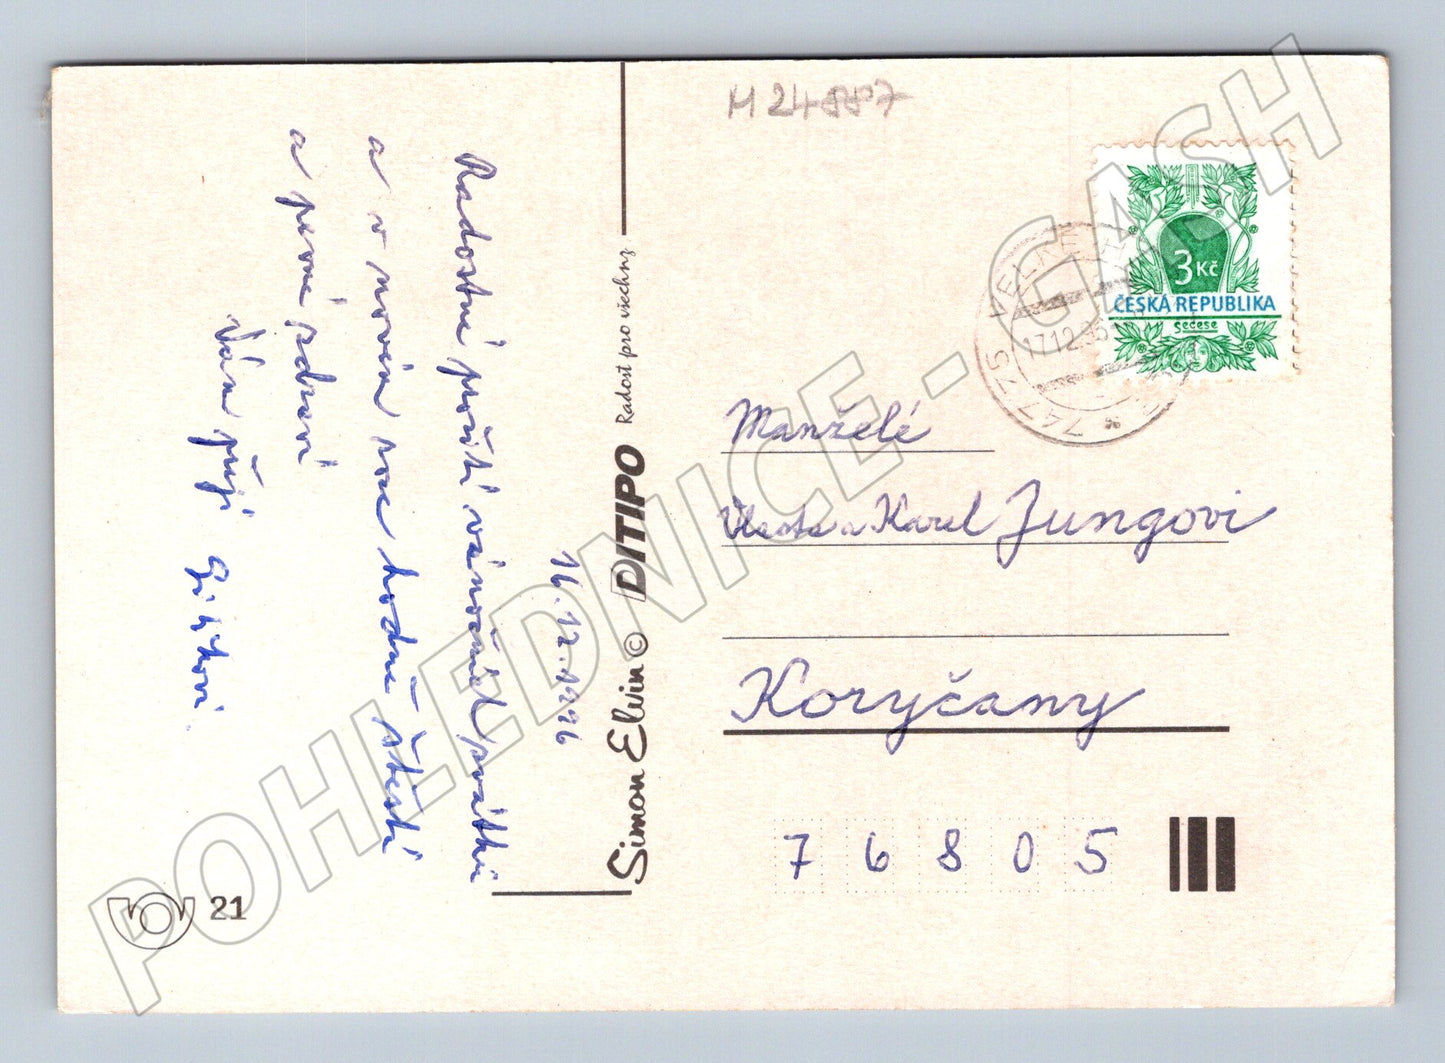 16.12.1996
Radostné prožití vánočních svátků
a v novém roce hodně štěstí
a pevné zdraví
Vám přejí
M 24887
3 Kč
ČESKÁ REPUBLIKA
Secese
747 25 VELKÉ
17.12.
Manželé
Vlasta a Karel Jungovi
Koryčany
7 6 8 0 5
Simon Elvin © DITIPO Radost pro všechny
21
POHLEDNICE - GASH